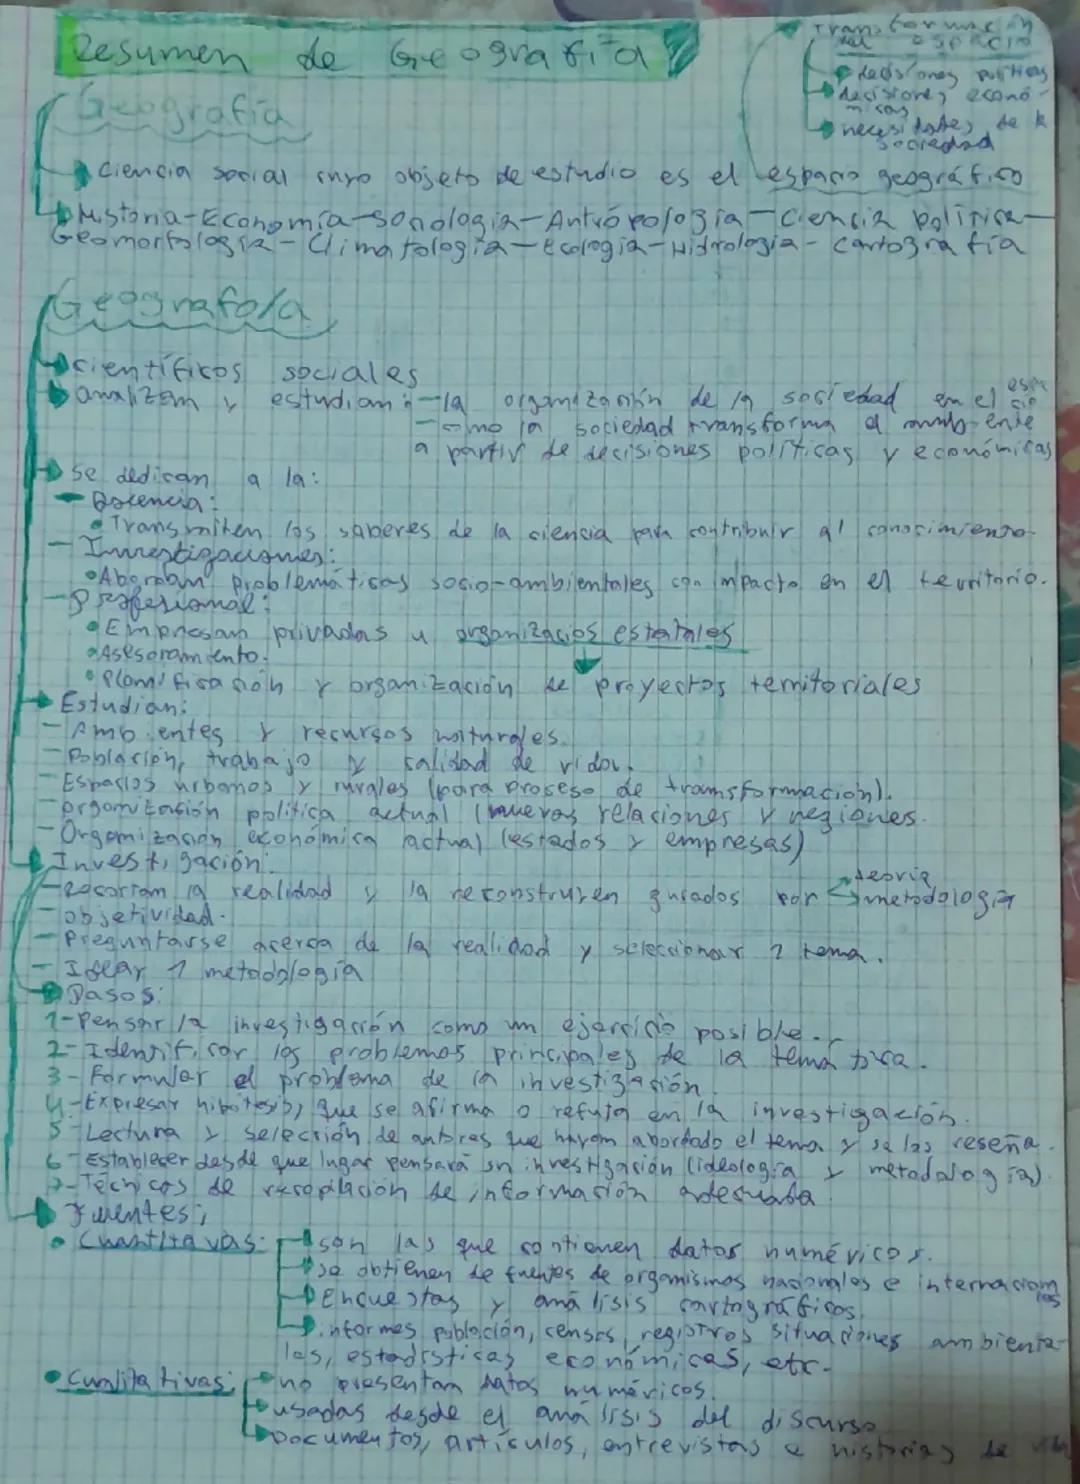 Resumen de Geografía
Transformación
del espacio
decisiones políticas
decisiones econó-
micas
necesidades de la
sociedad
Geografía
Ciencia social cuyo objeto de estudio es el espacio geográfico
Historia-Economía-Sociología-Antropología-Ciencia política-
Geomorfología-Climatología-Ecología-Hidrología-Cartografía
Geografo/a
científicos sociales
analizan y estudian: -la organización de la sociedad en el espa
cio
-como la sociedad transforma el ambiente
a partir de decisiones políticas y económicas
se dedican a la:
- Docencia:
• Transmiten los saberes de la ciencia para contribuir al conocimiento.
- Investigaciones:
• Abordan problemáticas socio-ambientales con impacto en el territorio.
- Profesional:
• Empresan privadas u organizacios estatales
• Asesoramiento.
• Planificación y organización de proyectos territoriales
Estudian:
- Ambientes y recursos naturales.
- Población, trabajo y calidad de vida.
- Espacios urbanos y rurales (para proseso de transformación).
- organización política actual (nuevas relaciones y regiones.
- Organización económica actual (estados y empresas)
Investigación:
- Recortan la realidad y la reconstruyen guiados por teoria
metodología
- objetividad.
- Preguntarse acerca de la realidad y seleccionar 1 tema.
- Idear 1 metodología
Pasos:
1- Pensar la investigación como un ejercicio posible.
2- Identificar los problemas principales de la temática.
3- Formular el problema de la investigación
4- Expresar hipótesis, que se afirma o refuta en la investigación.
5- Lectura y selección de autores que hayan abordado el tema y se los reseña.
6- Establecer desde que lugar pensará su investigación (ideología y metodología).
7- Técnicas de recopilación de información adecuada
Fuentes:
• Cuantitavas: son las que contienen datos numéricos.
se obtienen de fuentes de organismos nacionales e internacion
ales
Encuestas y análisis cartográficos.
informes población, censos, registros situaciones ambienta-
les, estadísticas económicas, etc.
• Cualitativas: no presentan datos numéricos.
usadas desde el análisis del discurso
Documentos, artículos, entrevistas e historias de